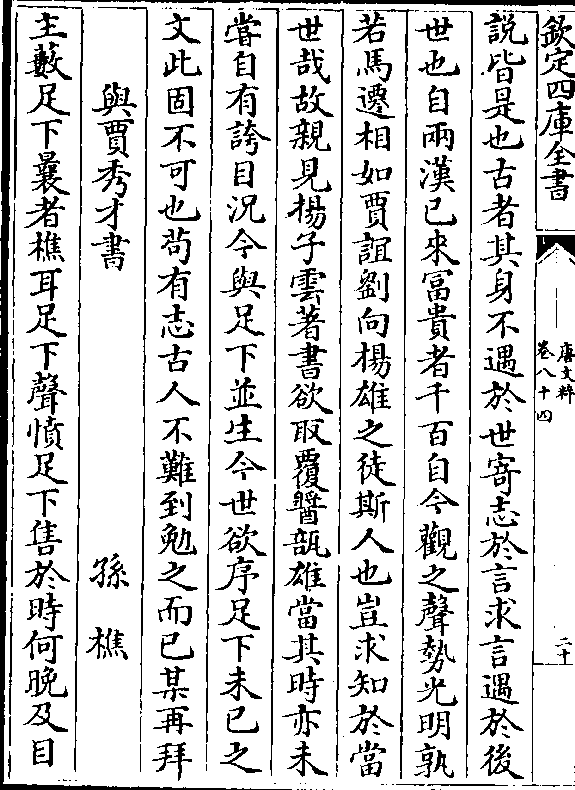 欽定四庫全書
唐文粹
卷八十四
二十
説皆是也古者其身不遇於世寄志於言求言遇於後
世也自兩漢已來冨貴者千百自今觀之聲勢光明孰
若馬遷相如賈誼劉向楊雄之徒斯人也豈求知於當
世哉故親見楊子雲著書欲取覆醬瓿雄當其時亦未
嘗自有誇目況今與足下並生今世欲序足下未已之
文此固不可也茍有志古人不難到勉之而已某再拜
與賈秀才書 孫樵
主藪足下曩者樵耳足下聲憤足下售於時何晚及目